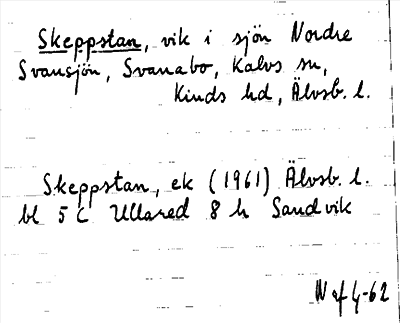 Skeppstan, vik i sjön Nordre
Svansjön, Svanabo, Kalvs sn,
Kinds hd, Älvsb. l.
Skeppstan, ek (1961) Älvsb. l.
bl 5 C Ullared 8 h Sandvik